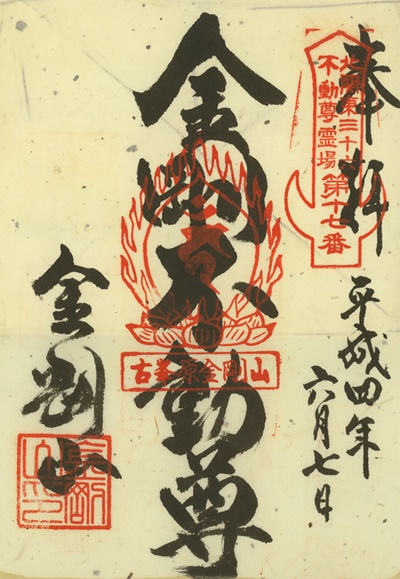 奉拝
平成四年
六月七日
北関東三十六
不動尊霊場
第十七番
金剛不動尊
古峯原金剛山
金剛山